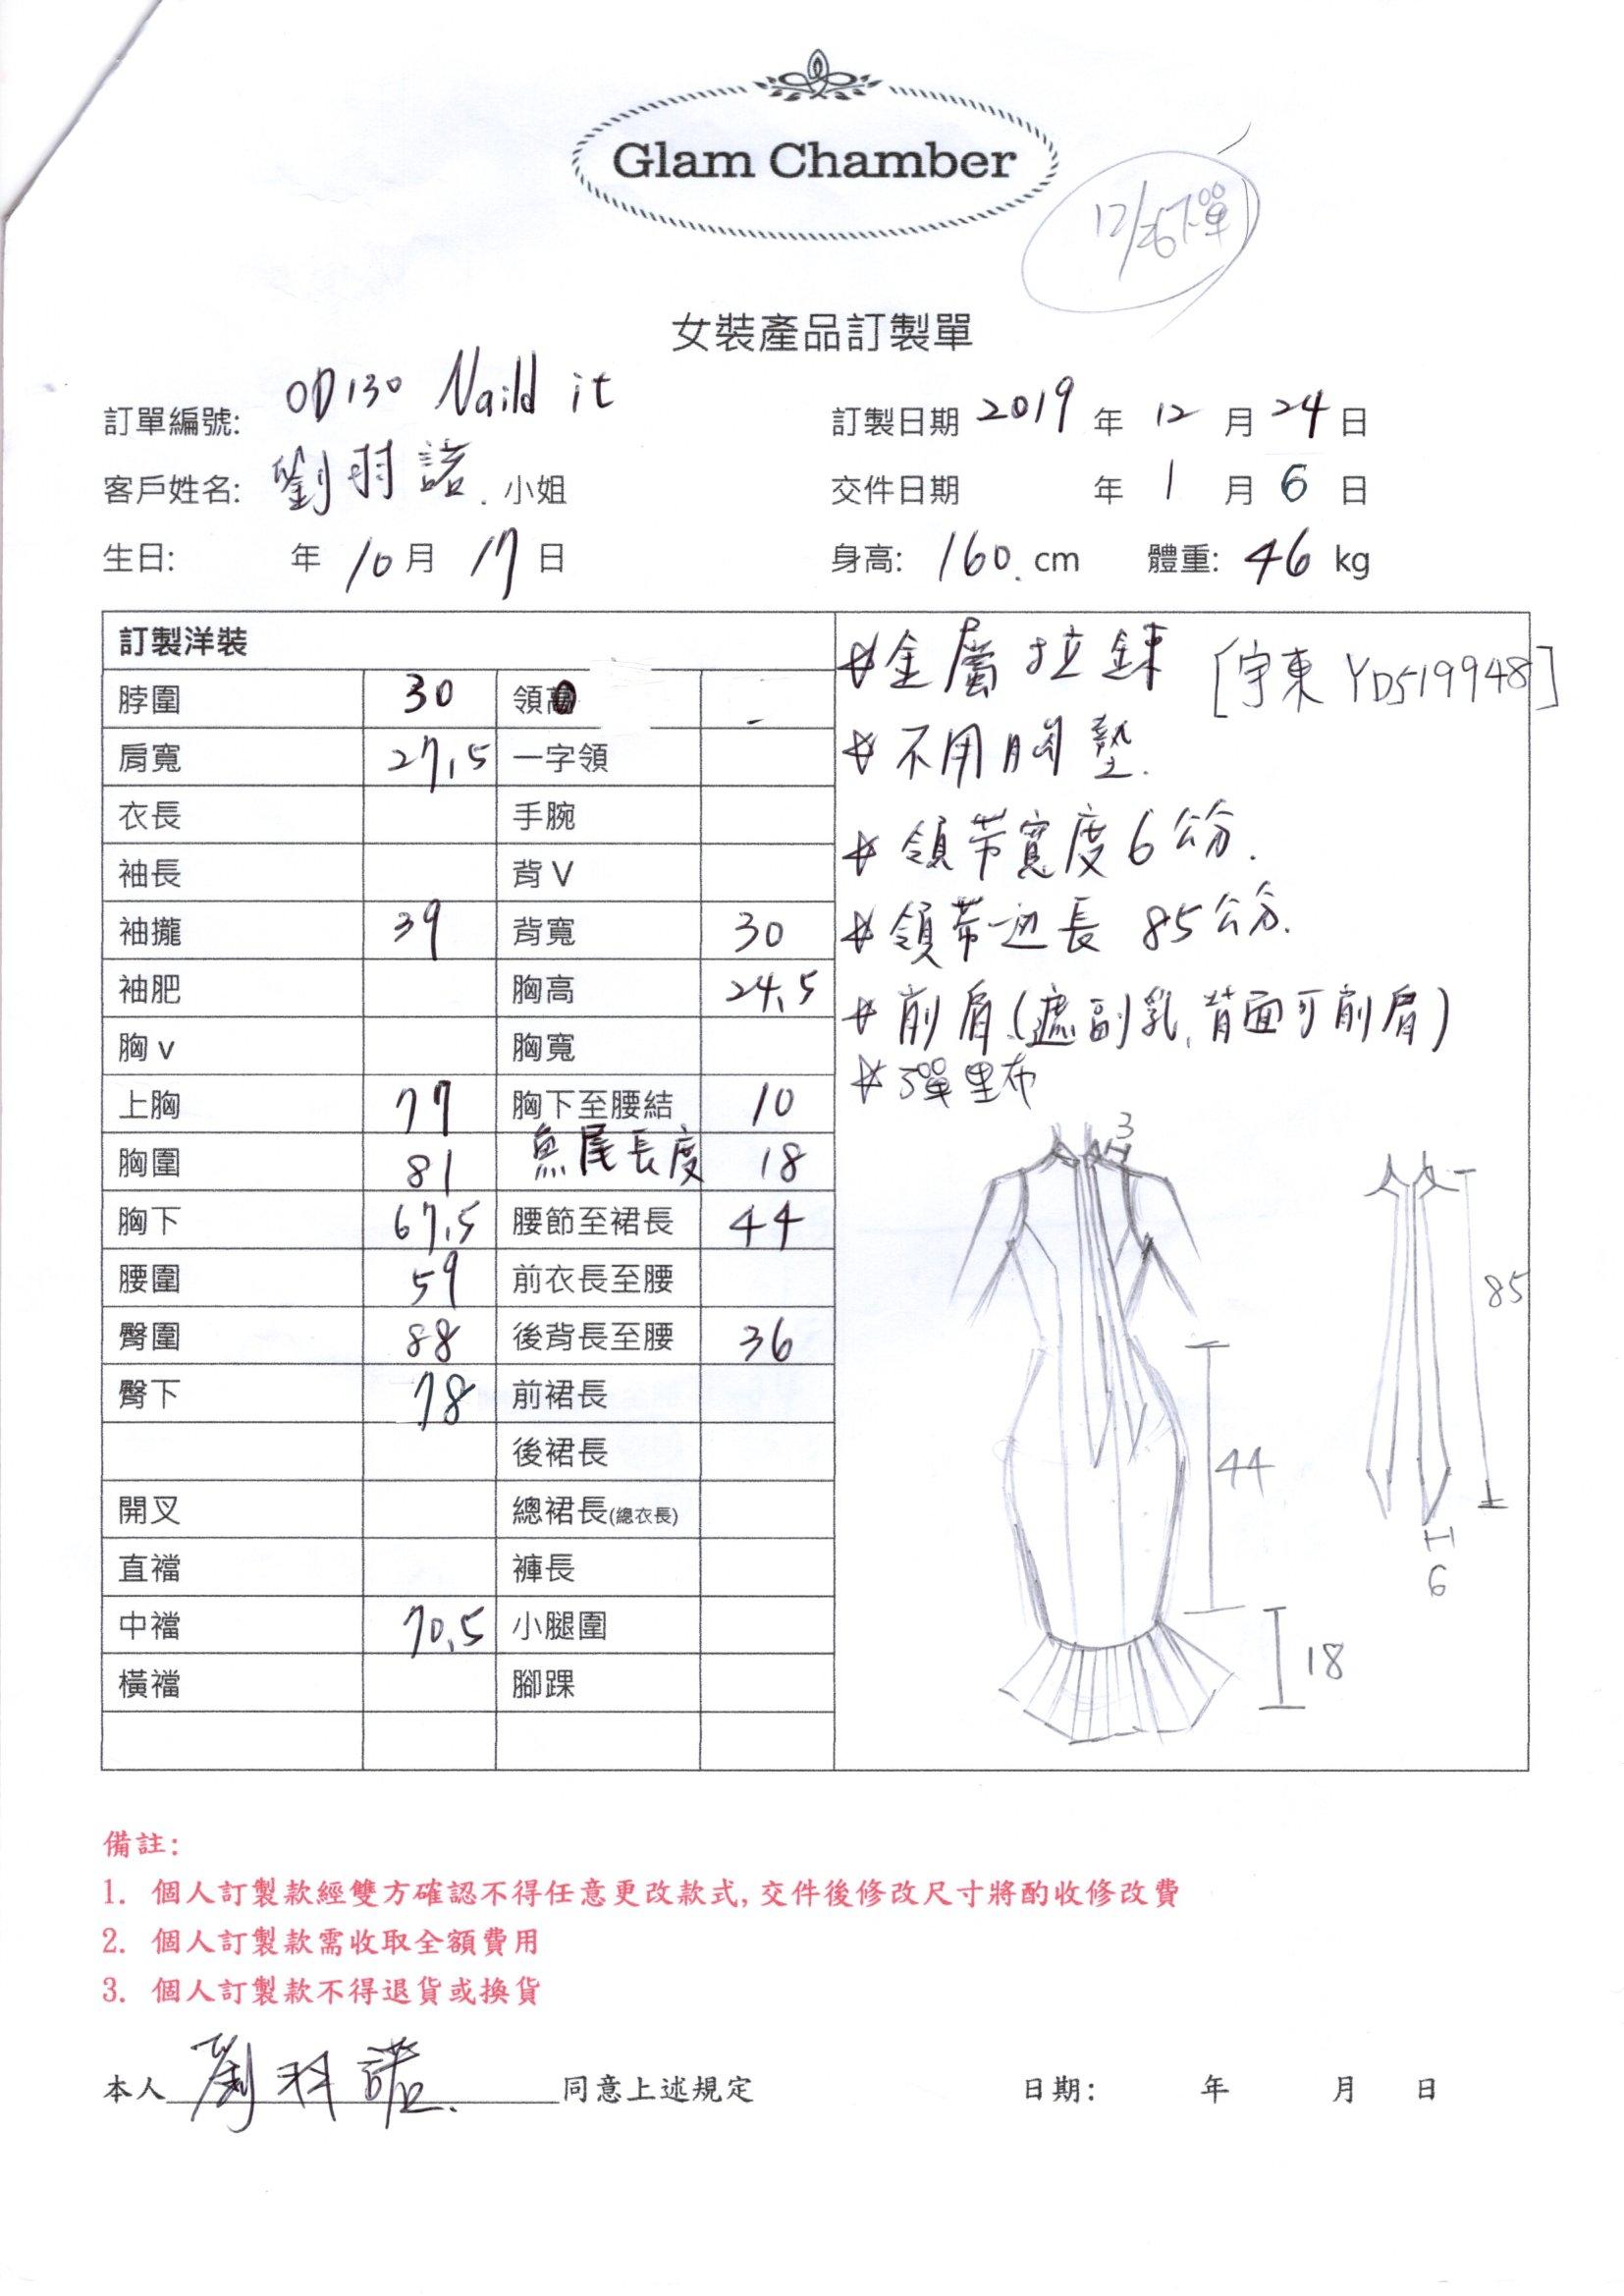 Glam Chamber
12/26下單
女裝產品訂製單
訂單編號: OD130 Naild it
訂製日期 2019 年 12 月 24 日
客戶姓名: 劉羽諾. 小姐
交件日期 年 1 月 6 日
生日: 年 10 月 17 日
身高: 160. cm 體重: 46 kg
訂製洋裝
脖圍 30 領高 -
肩寬 27.5 一字領
衣長 手腕
袖長 背 V
袖攏 39 背寬 30
袖肥 胸高 24.5
胸 v 胸寬
上胸 77 胸下至腰結 10
胸圍 81 魚尾長度 18
胸下 67.5 腰節至裙長 44
腰圍 59 前衣長至腰
臀圍 88 後背長至腰 36
臀下 78 前裙長
後裙長
開叉 總裙長(總衣長)
直襠 褲長
中襠 70.5 小腿圍
橫襠 腳踝
*金屬拉鍊 [宇東 YD519948]
*不用胸墊.
*領帶寬度6公分.
*領帶一边長 85公分.
*削肩(遮副乳, 背面可削肩)
*彈里布
3
85
44
6
18
備註:
1. 個人訂製款經雙方確認不得任意更改款式, 交件後修改尺寸將酌收修改費
2. 個人訂製款需收取全額費用
3. 個人訂製款不得退貨或換貨
本人 劉羽諾. 同意上述規定
日期: 年 月 日